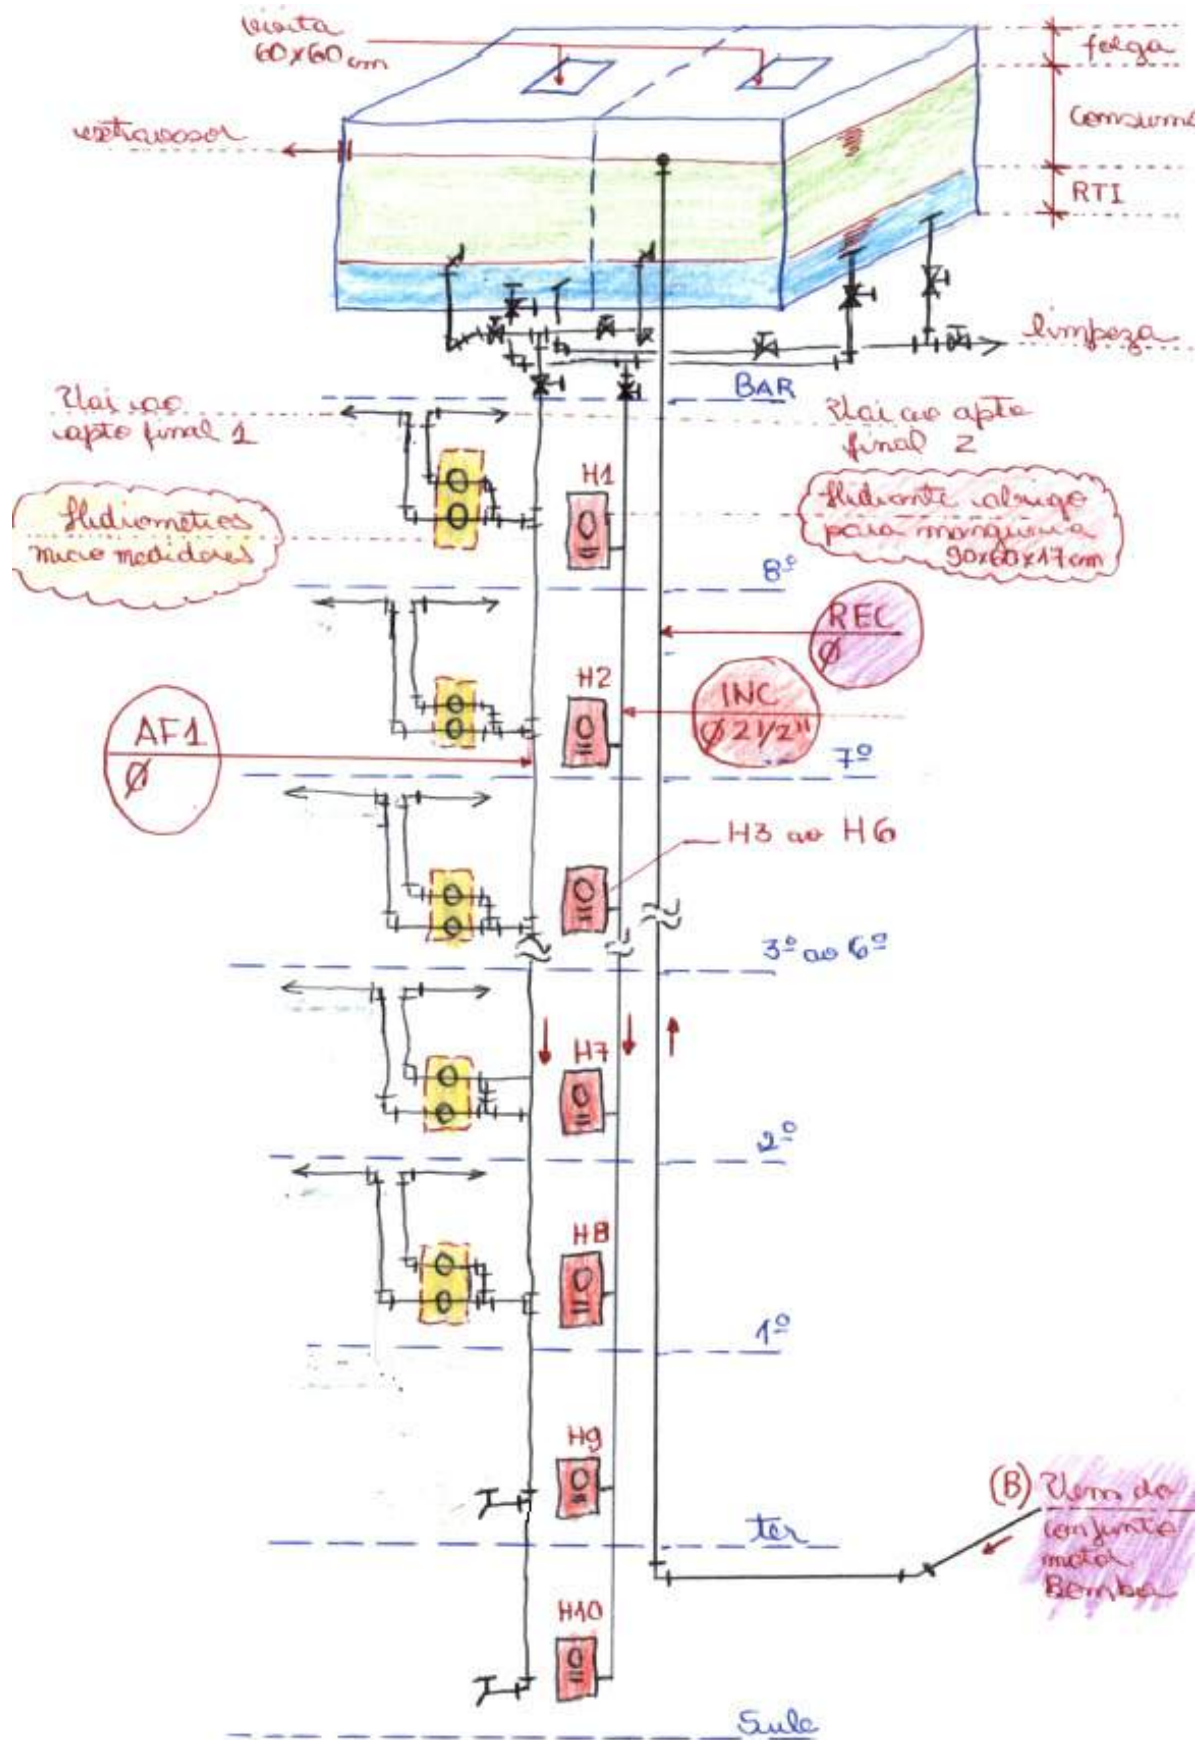 visita
60x60cm
folga
extravasor
consumo
RTI
limpeza
BAR
Vai ao
apto final 1
Vai ao apto
final 2
H1
Hidrometros
micro medidores
Hidrante abrigo
para mangueira
90x60x17cm
8º
REC
Ø
H2
INC
Ø 2 1/2"
AF1
Ø
7º
H3 ao H6
3º ao 6º
H7
2º
H8
1º
H9
(B) Vem do
conjunto
motor
Bomba
ter
H10
Subs